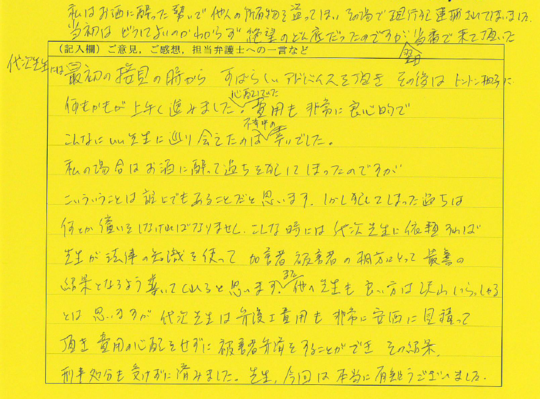 私はお酒に酔った勢いで他人の所有物を盗ってしまい その場で現行犯逮捕されてしまいました。
当初は どうしてよいのかわからず 絶望のどん底だったのですが 当番で来て頂いた
(記入欄) ご意見、ご感想、担当弁護士への一言など
代次先生には 最初の接見の時から すばらしいアドバイスを頂き その後は トントン拍子に
何もかもが上手く進みました。 費用も 非常に良心的で
こんなにいい先生に巡り会えたのは 不幸中の幸いでした。
私の場合はお酒に酔って過ちを犯してしまったのですが
こういうことは誰にでもあることだと思います。しかし犯してしまった過ちは
何とか償いをしなければなりません。こんな時には 代次先生に依頼すれば
先生が法律の知識を使って 加害者 被害者の両方にとって 最善の
結果となるよう導いてくれると思います。また 他の先生も良い方は沢山いらっしゃる
とは思いますが 代次先生は弁護士費用も 非常に安価に見積って
頂き 費用の心配をせずに被害者弁済をすることができ その結果、
刑事処分も受けずに済みました。先生、今回は本当に有難うございました。